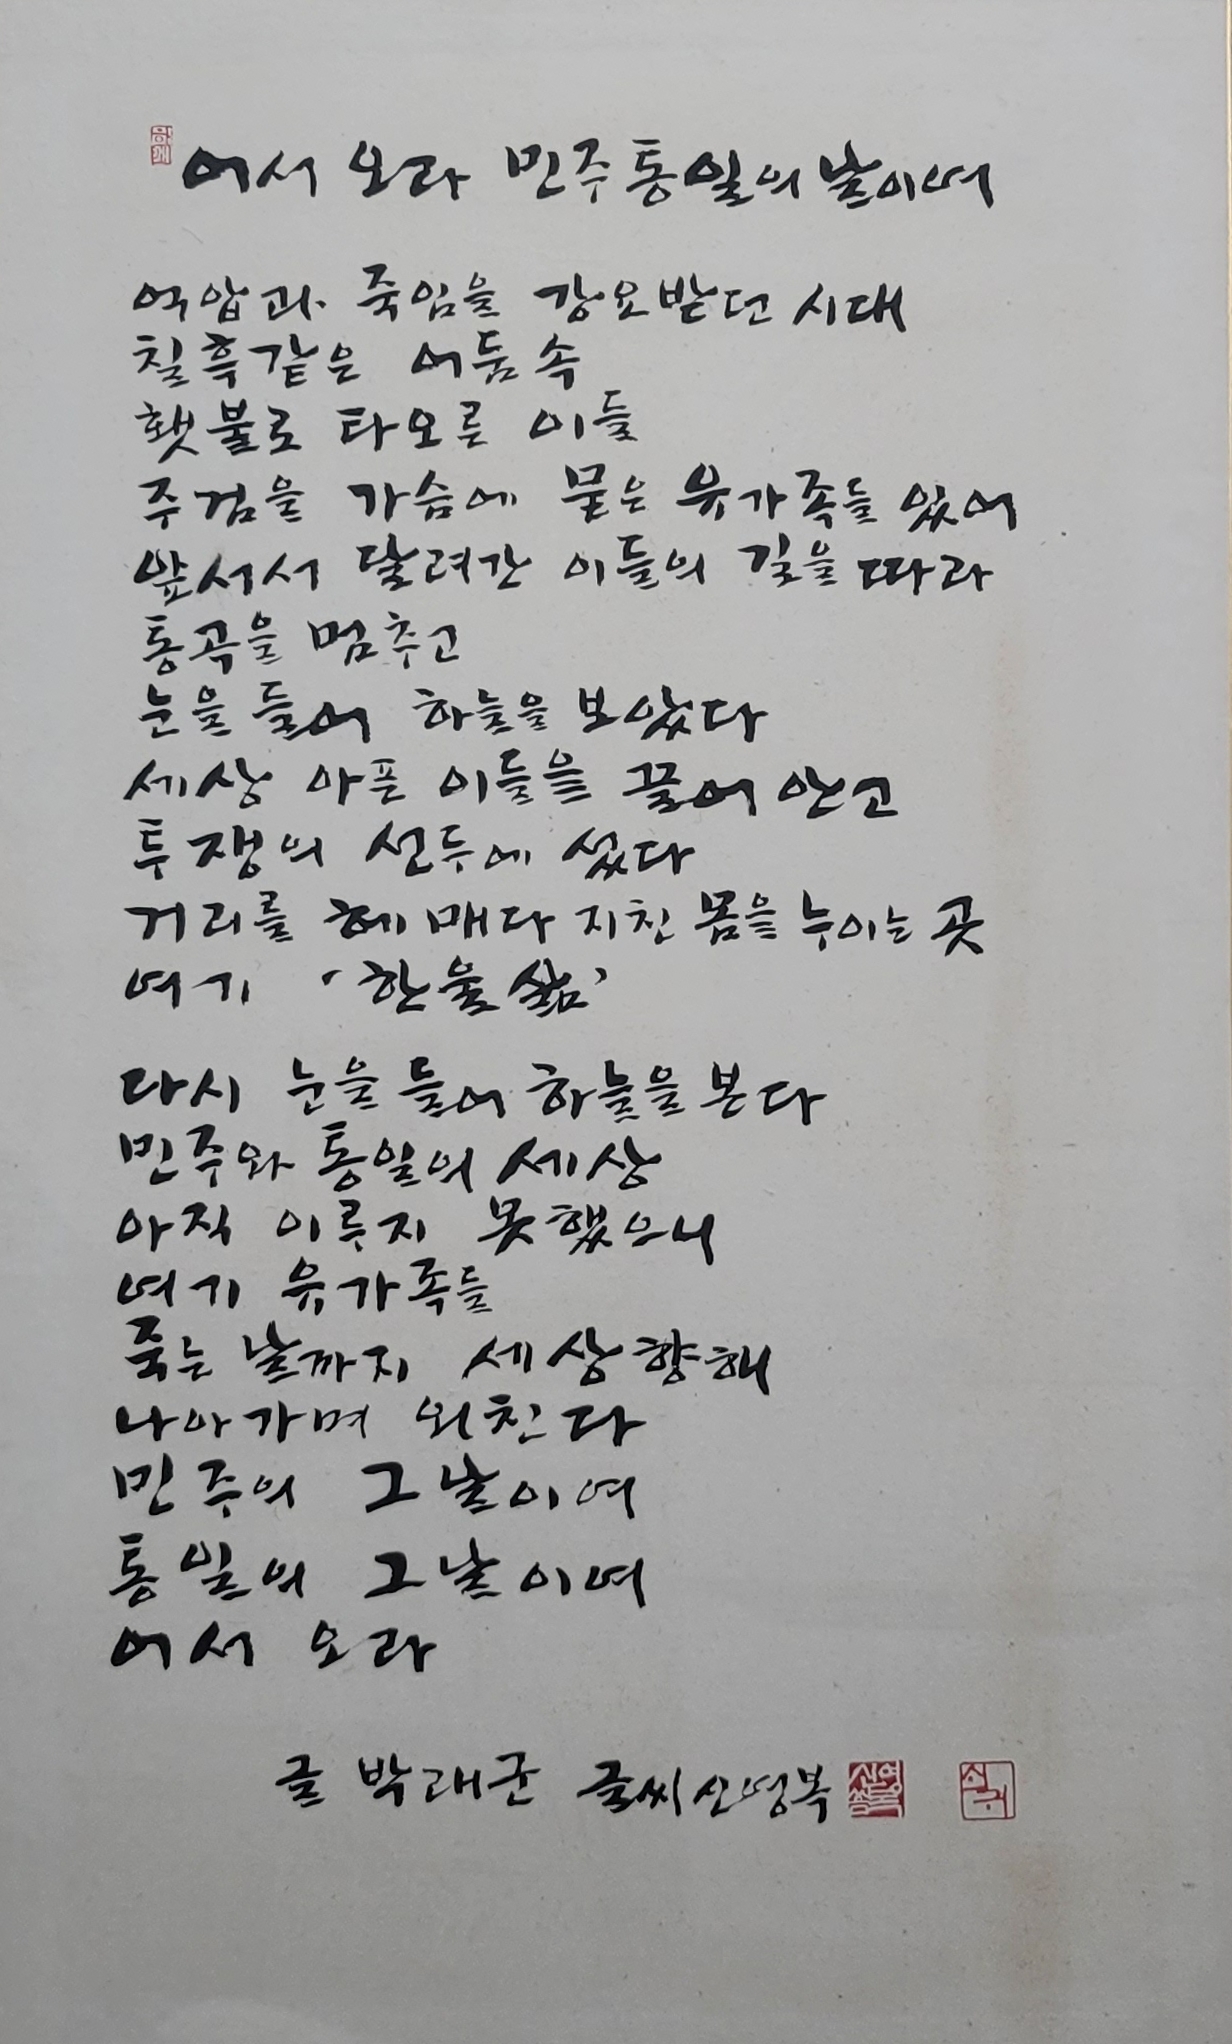 어서 오라 민주통일의 날이여
억압과 죽임을 강요받던 시대
칠흑같은 어둠 속
횃불로 타오른 이들
주검을 가슴에 묻은 유가족들 있어
앞서서 달려간 이들의 길을 따라
통곡을 멈추고
눈을 들어 하늘을 보았다
세상 아픈 이들을 끌어 안고
투쟁의 선두에 섰다
거리를 헤매다 지친 몸을 누이는 곳
여기 '한울삶'
다시 눈을 들어 하늘을 본다
민주와 통일의 세상
아직 이루지 못했으니
여기 유가족들
죽는 날까지 세상 향해
나아가며 외친다
민주의 그날이여
통일의 그날이여
어서 오라
글 박래군 글씨 신영복